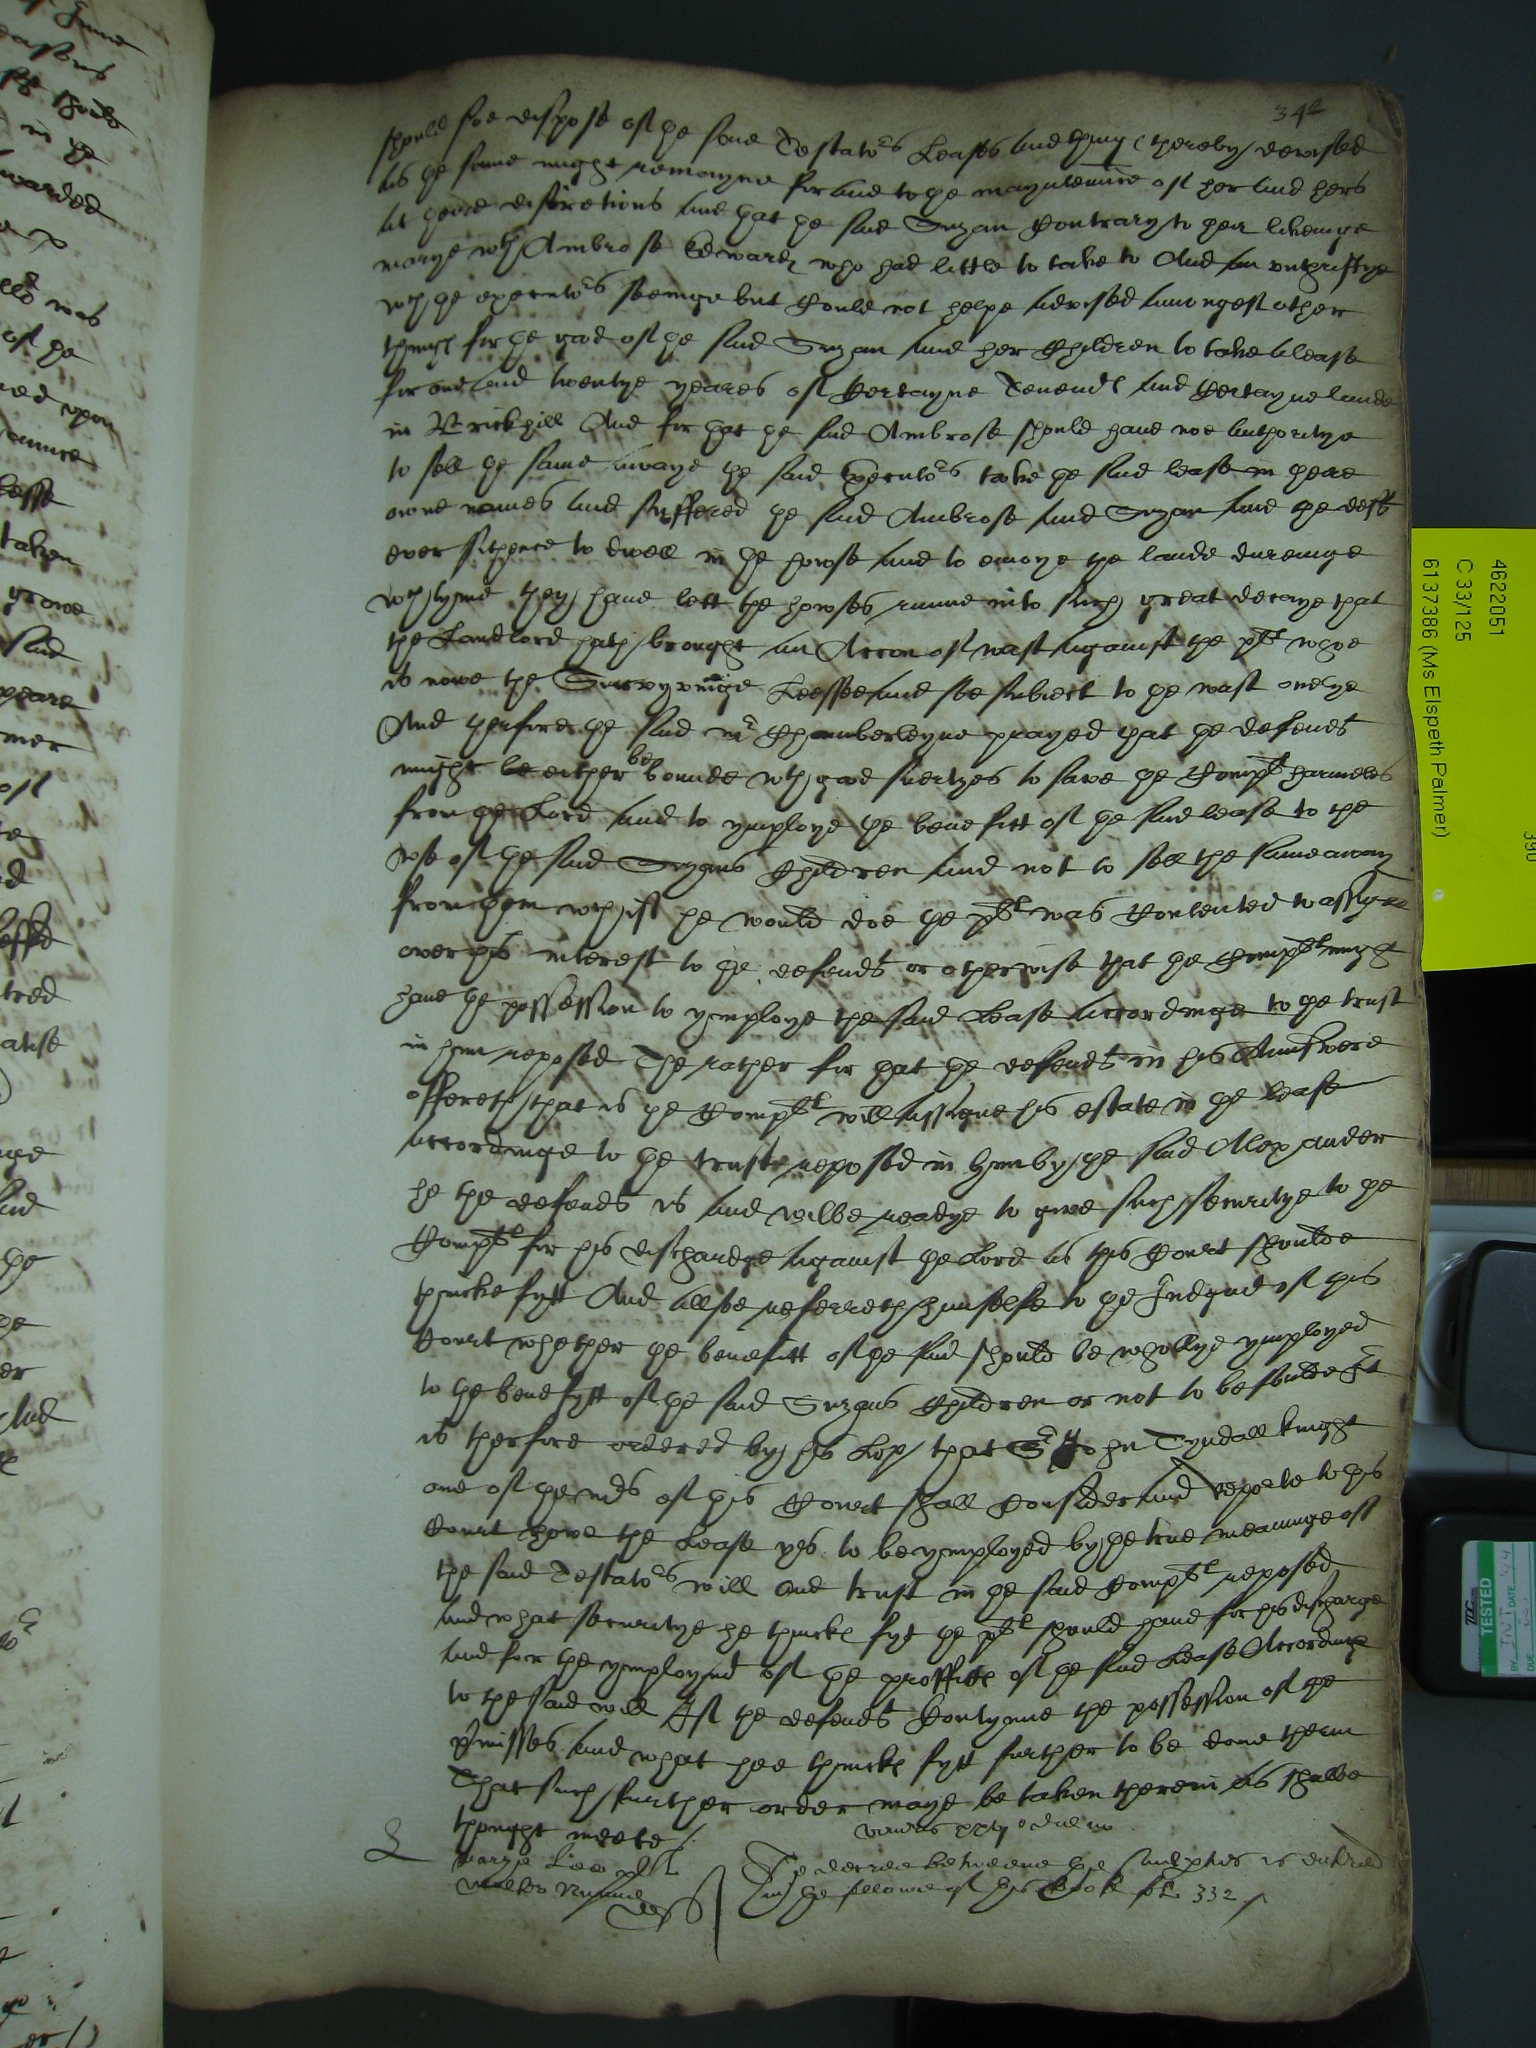 342
should soe dispose of the said Testators Leases and thinges thereby devised
as the same might remayne for and to the mayntenance of her and hers
at theire discretions and that the said Suzan Contrary to theire likeinge
marye wth Ambrose Edwardes who had little to take to And an unthriftye
wch the executors seeinge but Could not helpe advised amongest other
thinges for the good of the said Suzan and her Children to take a lease
for one and twentye yeares of Certayne Tenemtes and Certayne lande
in Brickhill And for that the said Ambrose should have noe authoritye
to sell the same awaye the said Executors take the said lease in theire
owne names and suffered the said Ambrose and Suzan and the deft
ever sithence to dwell in the howse and to enioye the lande dureinge
wch tyme they have lett the howses runne into such great decaye that
the Landlord hath brought an Accon of wast against the plt whoe
is nowe the Survyvinge Leessee and soe subiect to the wast onelye
And therfore the said mr Chamberleyne prayed that the defendt
might be either be bounde wth good suertyes to save the Complt harmeles
from the Lord and to ymploye the benefitt of the said lease to the
use of the said Suzans Children and not to sell the same away
from them wch if he would doe the plt was Contented to assigne
over his interest to the defendt or otherwise that the Complt might
have the possession to ymploye the said Lease accordinge to the trust
in him reposed The rather for that the defendt in his Aunswere
offereth that is the Complt will assigne his estate in the lease
accordinge to the trust reposed in him by the said Alexander
he the defendt is and wilbe readye to give such securitye to the
Complt for his dischardge against the Lord as this Court should
thincke fytt And allsoe referreth himselfe to the Iudgmt of this
Court whether the benefitt of the said should be whollye ymployed
to the benefytt of the said Suzans Children or not to be soulde It
is therfore ordered by his Lop that Sr John Tyndall knight
one of the mrs of this Court shall Consider and reporte to this
Court howe the Lease ys to be ymployed by the true meaninge of
the said Testators will and trust in the said Complt reposed
and what securitye he thinckes fyt the plt should have for his discharge
and for the ymploymt of the proffittes of the said Lease Accordinge
to the said will If the defendt Contynue the possession of the
pmisses and what hee thinckes fytt further to be done therin
That such further order maye be taken therein as shalbe
thought meete
Lee plt
deft
The decree betweene the said pties is entred
in the fellowe of this Book fol. 332
4622051
C 33/125
6137386 (Ms Elspeth Palmer)
390
TESTED
BY
INT
DATE
DUE